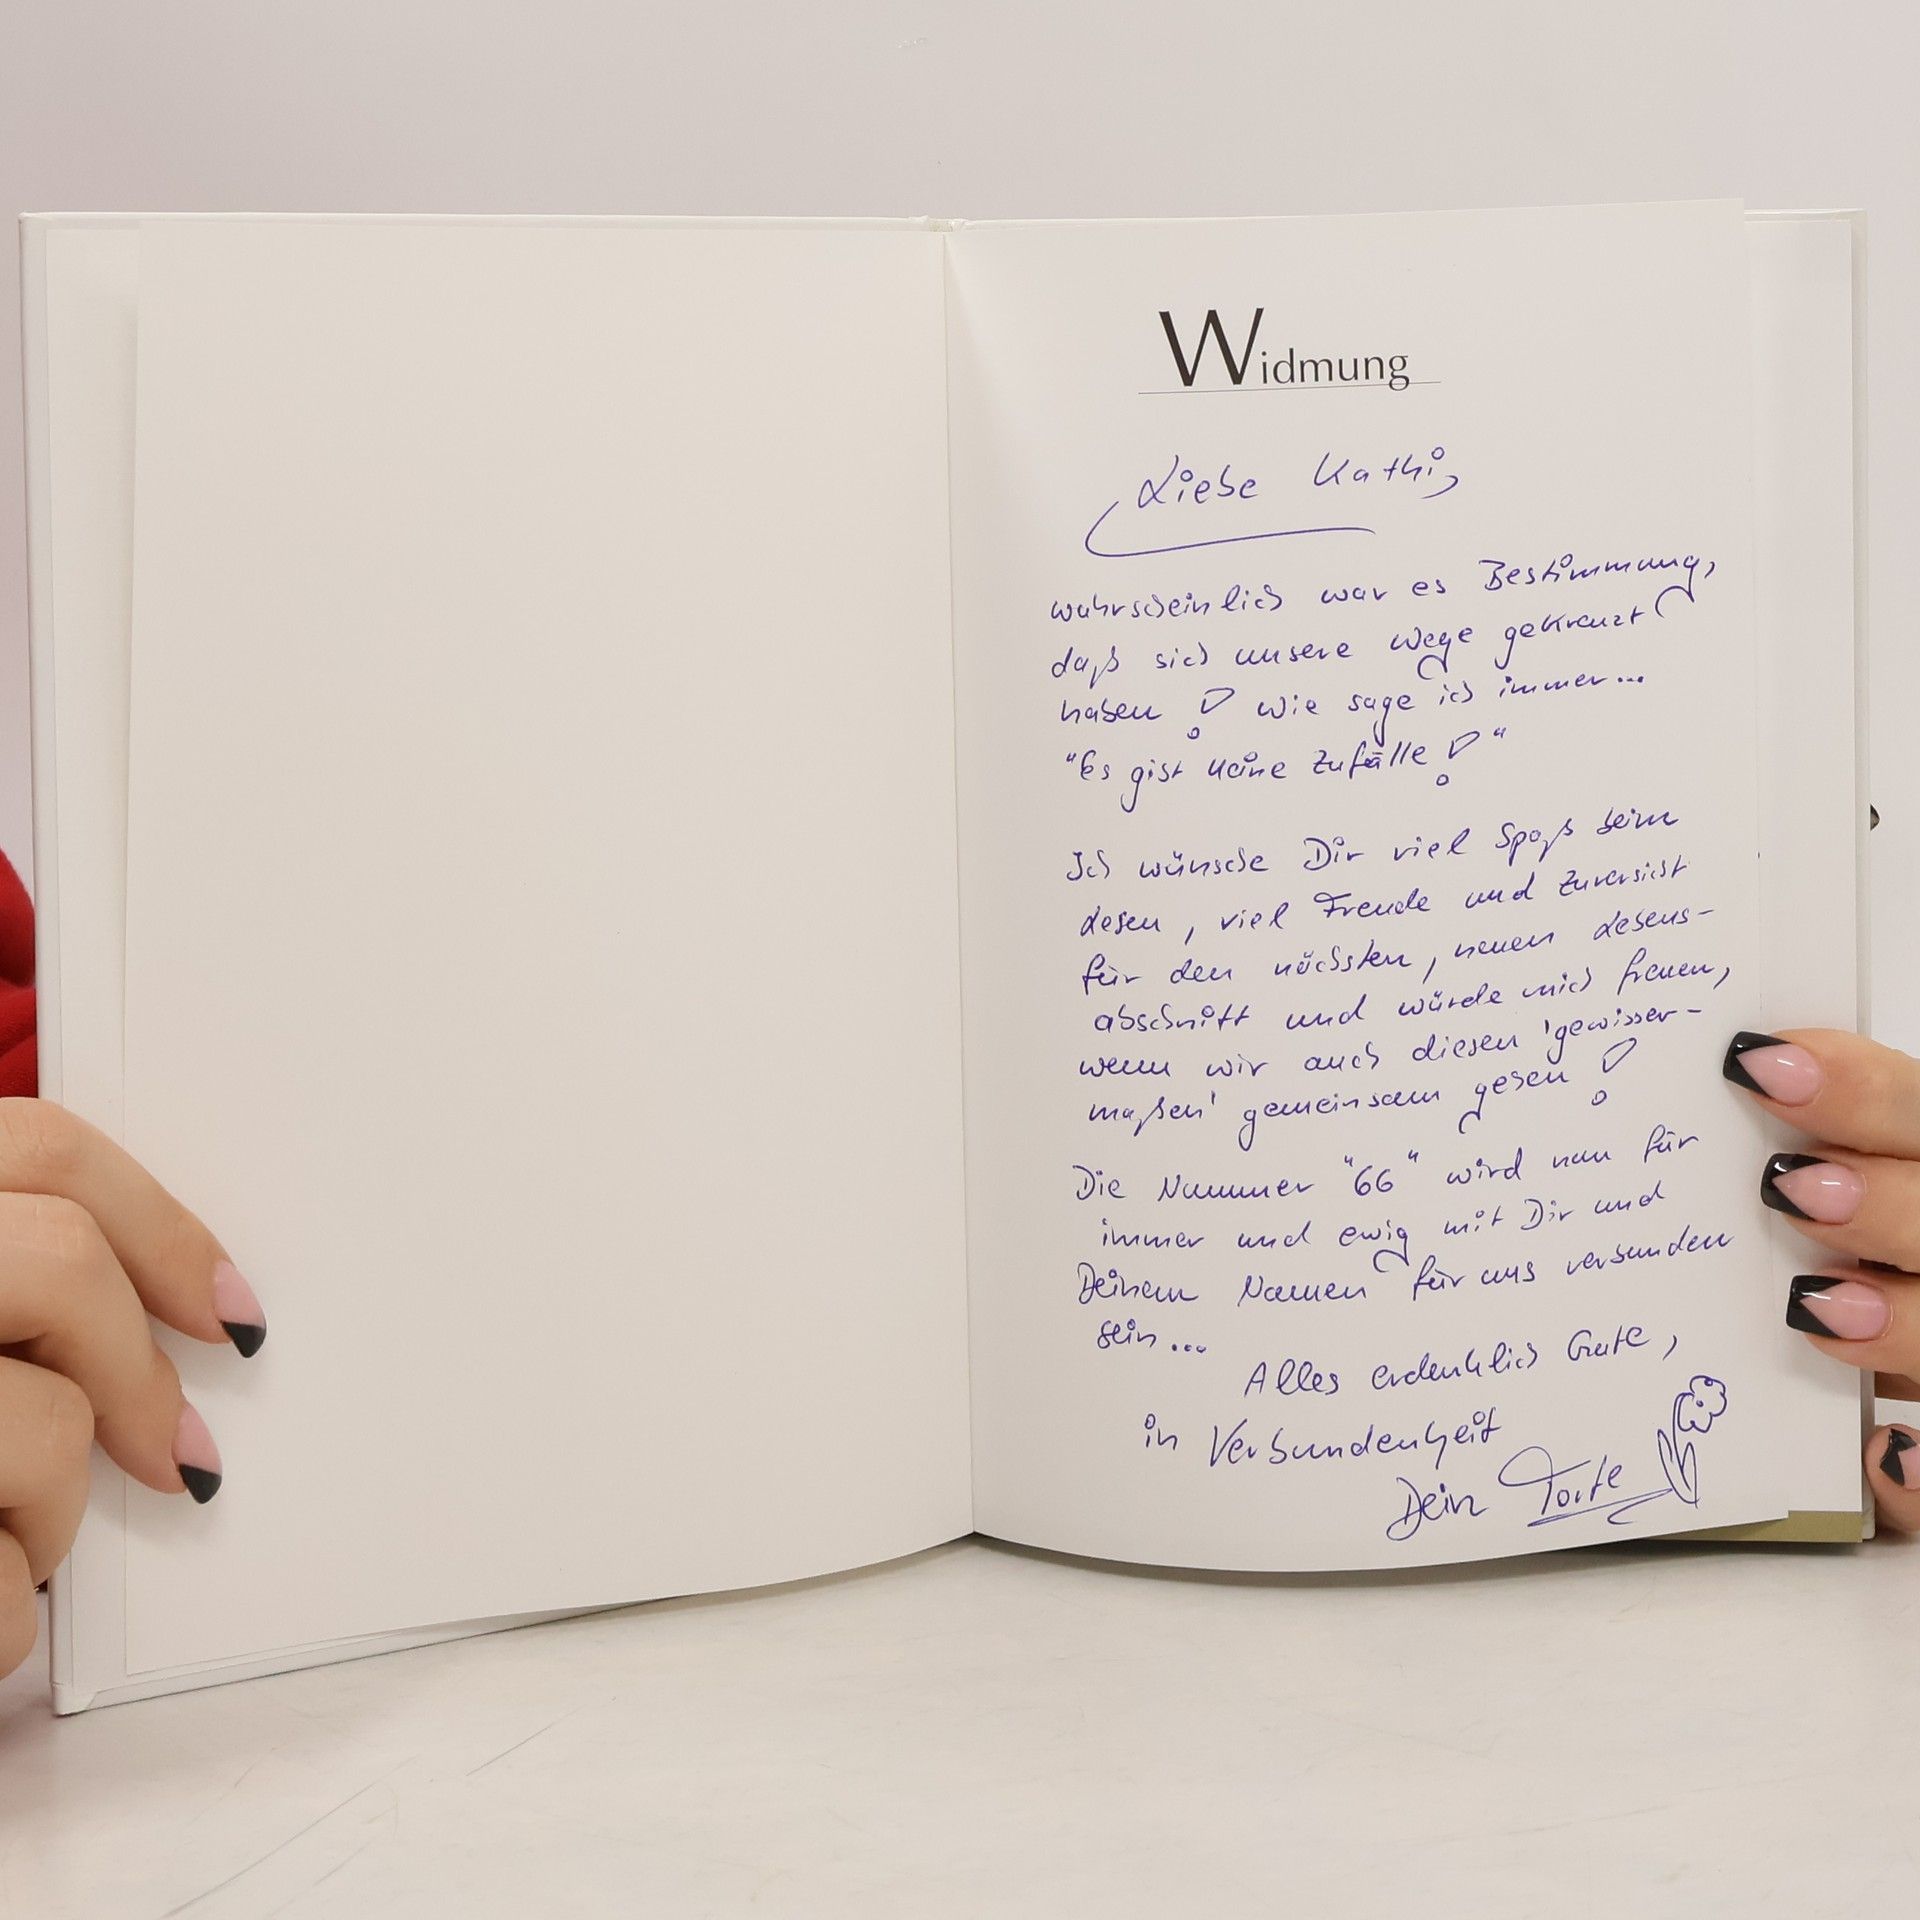 Widmung
Liebe Kathi,
wahrscheinlich war es Bestimmung,
daß sich unsere Wege gekreuzt
haben! Wie sage ich immer...
"Es gibt keine Zufälle!"
Ich wünsche Dir viel Spaß beim
Lesen, viel Freude und Zuversicht
für den nächsten, neuen Lebens-
abschnitt und würde mich freuen,
wenn wir auch diesen 'gewisser-
maßen' gemeinsam gehen!
Die Nummer "66" wird nun für
immer und ewig mit Dir und
Deinem Namen für uns verbunden
sein...
Alles erdenklich Gute,
in Verbundenheit
Dein